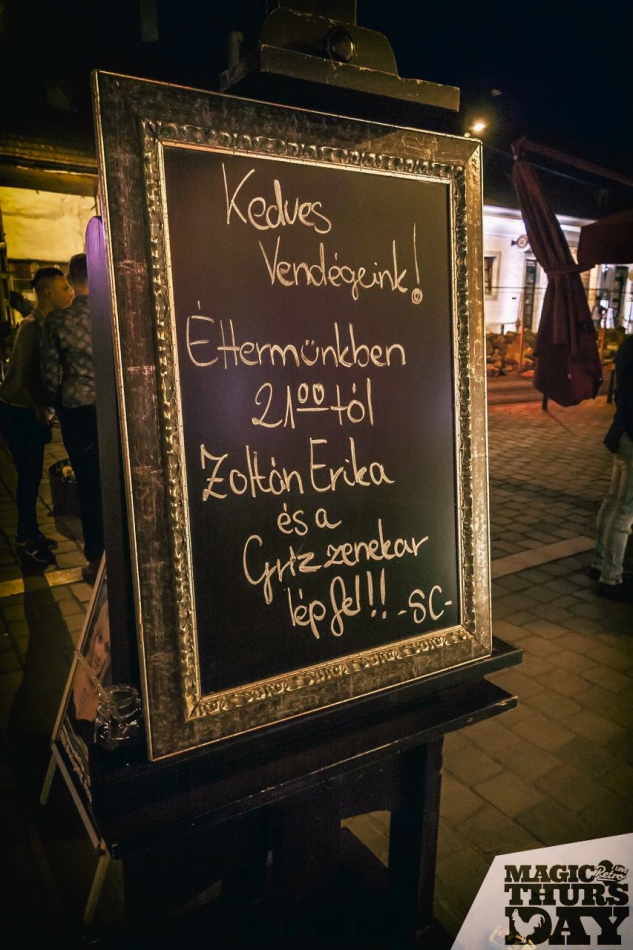 Kedves
Vendégeink!
Éttermünkben
21⁰⁰-tól
Zoltán Erika
és a
Griz zenekar
lép fel!! -SC-
MAGIC
Retro
THURS
DAY